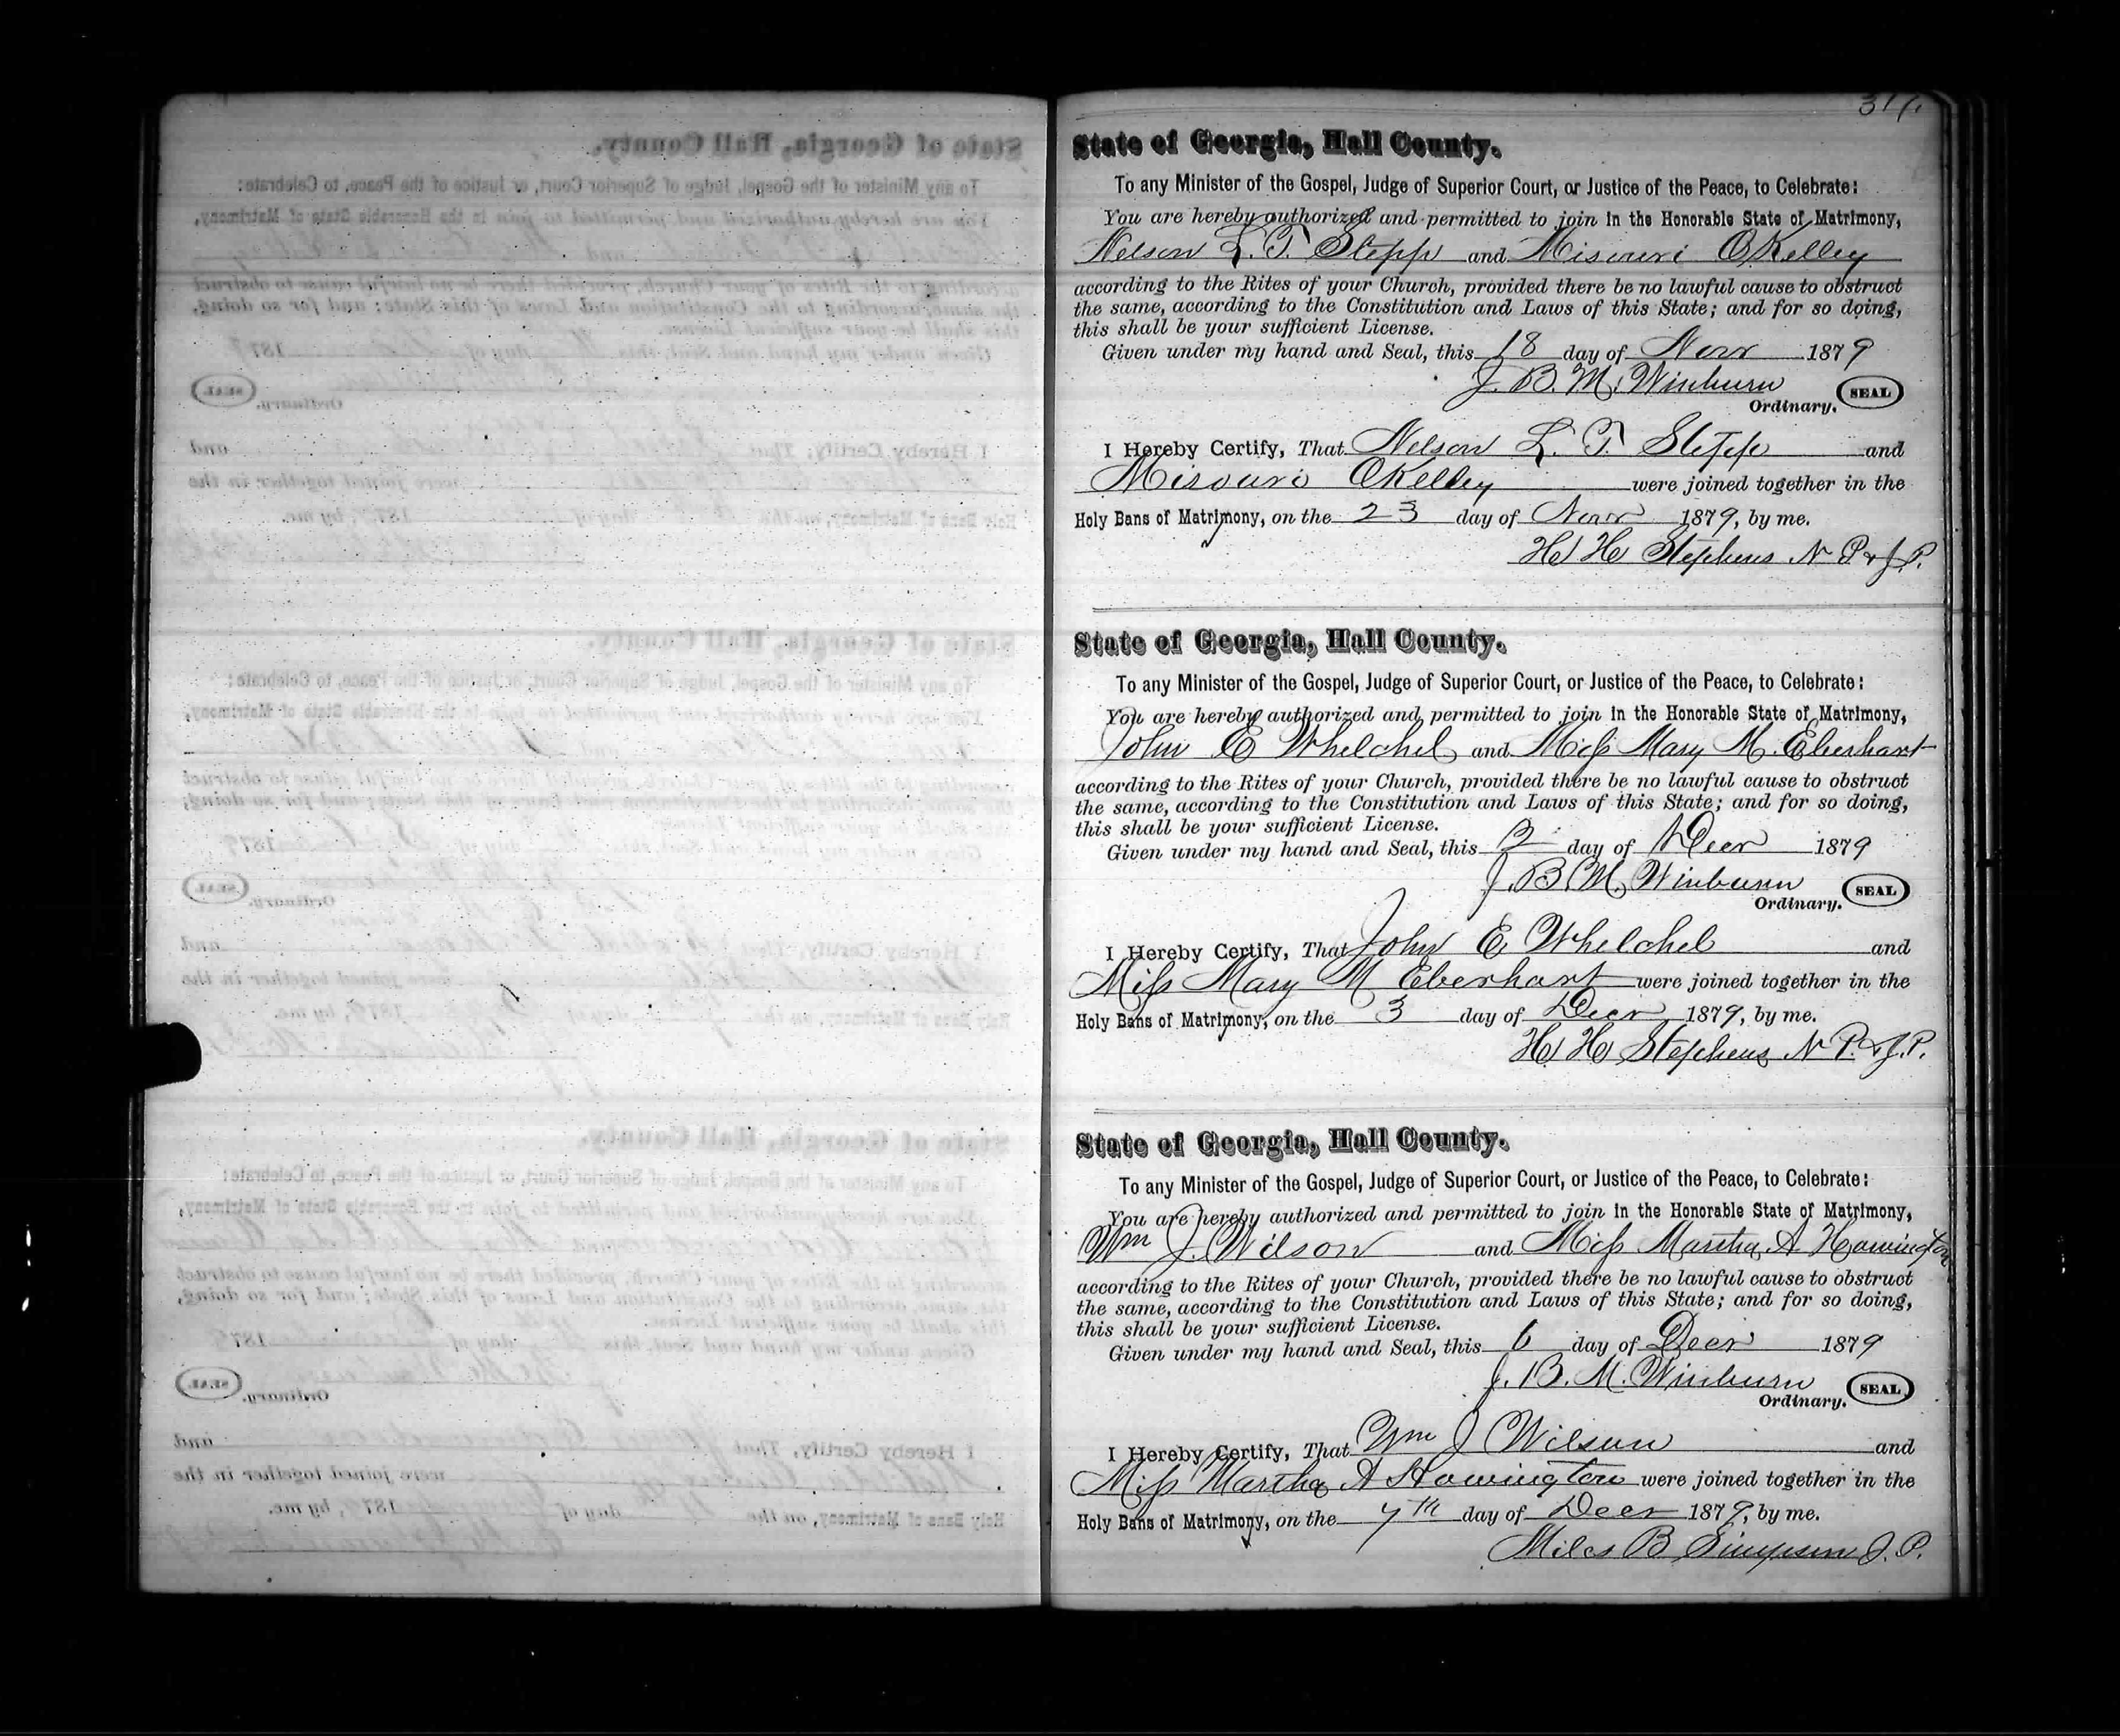 State of Georgia, Hall County.
To any Minister of the Gospel, Judge of Superior Court, or Justice of the Peace, to Celebrate:
You are hereby authorized and permitted to join in the Honorable State of Matrimony,
Nelson L. T. Stepp and Misouri OKelley
according to the Rites of your Church, provided there be no lawful cause to obstruct
the same, according to the Constitution and Laws of this State; and for so doing,
this shall be your sufficient License.
Given under my hand and Seal, this 18 day of Novr 1879
J. B. M. Winburn SEAL
Ordinary.
I Hereby Certify, That Nelson L. T. Stepp and
Misouri OKelley were joined together in the
Holy Bans of Matrimony, on the 23 day of Novr 1879, by me.
H H Stephens N P & J. P.
State of Georgia, Hall County.
To any Minister of the Gospel, Judge of Superior Court, or Justice of the Peace, to Celebrate:
You are hereby authorized and permitted to join in the Honorable State of Matrimony,
John E Whelchel and Miss Mary M. Eberhart
according to the Rites of your Church, provided there be no lawful cause to obstruct
the same, according to the Constitution and Laws of this State; and for so doing,
this shall be your sufficient License.
Given under my hand and Seal, this day of Decr 1879
J. B. M. Winburn SEAL
Ordinary.
I Hereby Certify, That John E Whelchel and
Miss Mary M Eberhart were joined together in the
Holy Bans of Matrimony, on the 3 day of Decr 1879, by me.
H H Stephens N P. & J. P.
State of Georgia, Hall County.
To any Minister of the Gospel, Judge of Superior Court, or Justice of the Peace, to Celebrate:
You are hereby authorized and permitted to join in the Honorable State of Matrimony,
Wm J. Wilson and Miss Martha A Hawington
according to the Rites of your Church, provided there be no lawful cause to obstruct
the same, according to the Constitution and Laws of this State; and for so doing,
this shall be your sufficient License.
Given under my hand and Seal, this 6 day of Decr 1879
J. B. M. Winburn SEAL
Ordinary.
I Hereby Certify, That Wm J Wilson and
Miss Martha A Hawington were joined together in the
Holy Bans of Matrimony, on the 7th day of Decr 1879, by me.
Miles B Simpson J. P.